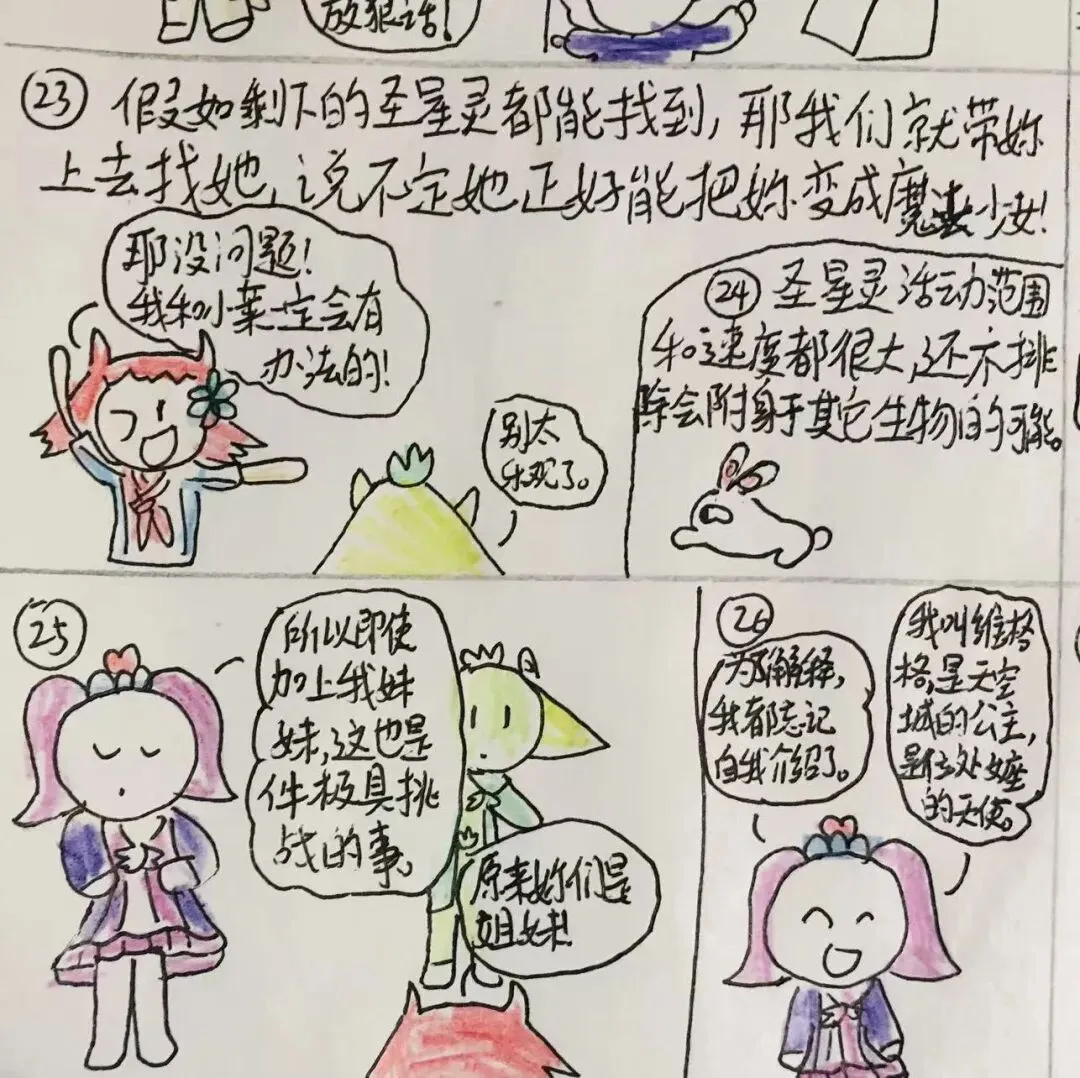 放狠话!
㉓ 假如剩下的圣星灵都能找到,耶我们就带妳
上去找她,说不定她正好能把妳变成魔法少女!
耶没问题!
我和小莱一定会有
办法的!
别太
乐观了。
㉔ 圣星灵活动范围
和速度都很大,还不排
除会附身于其它生物的可能。
㉕
所以即使
加上我妹
妹,这也是
件极具挑
战的事。
原来妳们是
姐妹!
㉖
为了解释,
我都忘记
自我介绍了。
我叫维格
格,是天空
城的公主,
是位处女座
的天使。